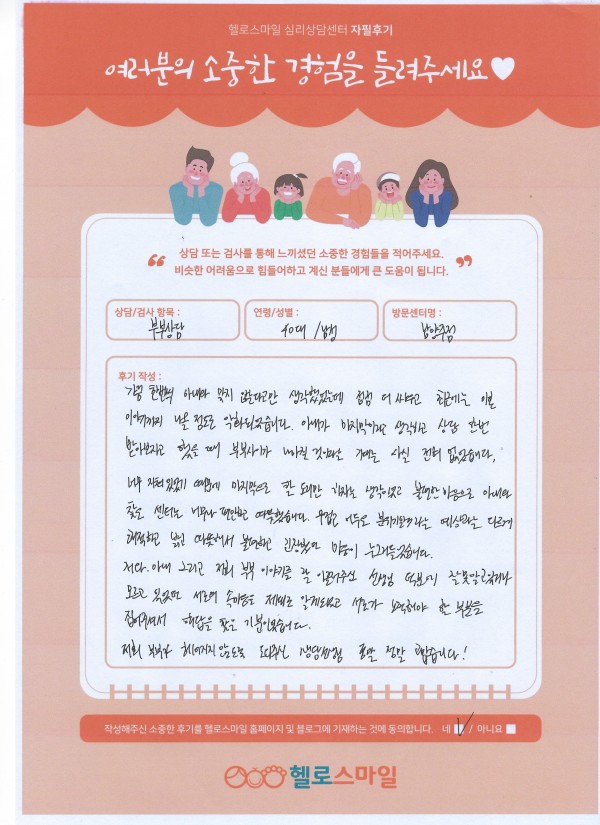 헬로스마일 심리상담센터 자필후기
여러분의 소중한 경험을 들려주세요
“ 상담 또는 검사를 통해 느끼셨던 소중한 경험들을 적어주세요.
비슷한 어려움으로 힘들어하고 계신 분들에게 큰 도움이 됩니다. ”
상담/검사 항목 :
부부상담
연령/성별 :
40대 / 남성
방문센터명 :
남양주점
후기 작성 :
가끔 한번씩 아내와 맞지 않는다고만 생각했었는데 점점 더 싸우고 최근에는 이혼
이야기까지 나올 정도로 악화되었습니다. 아내가 마지막이라 생각하고 상담 한번
받아보자고 했을 때 부부사이가 나아질 것이라는 기대는 사실 전혀 없었습니다.
너무 지쳐 있었기 때문에 마지막으로 갈 데까지 가보자는 생각이었고 불편한 마음으로 아내와
찾은 센터는 너무나 편안하고 따뜻했습니다. 무겁고 어두운 분위기일거라는 예상과는 다르게
쾌적하고 밝고 따뜻해서 불편하고 긴장했던 마음이 누그러들었습니다.
저와 아내 그리고 저희 부부 이야기를 잘 이끌어주신 선생님 덕분에 잘못알고있거나
모르고 있었던 서로의 속마음을 제대로 알게되었고 서로가 노력해야 할 부분을
짚어주셔서 해답을 찾은 기분이었습니다.
저희 부부가 헤어지지 않도록 도와주신 선생님 정말 정말 감사합니다!
작성해주신 소중한 후기를 헬로스마일 홈페이지 및 블로그에 기재하는 것에 동의합니다. 네 V / 아니요
헬로스마일